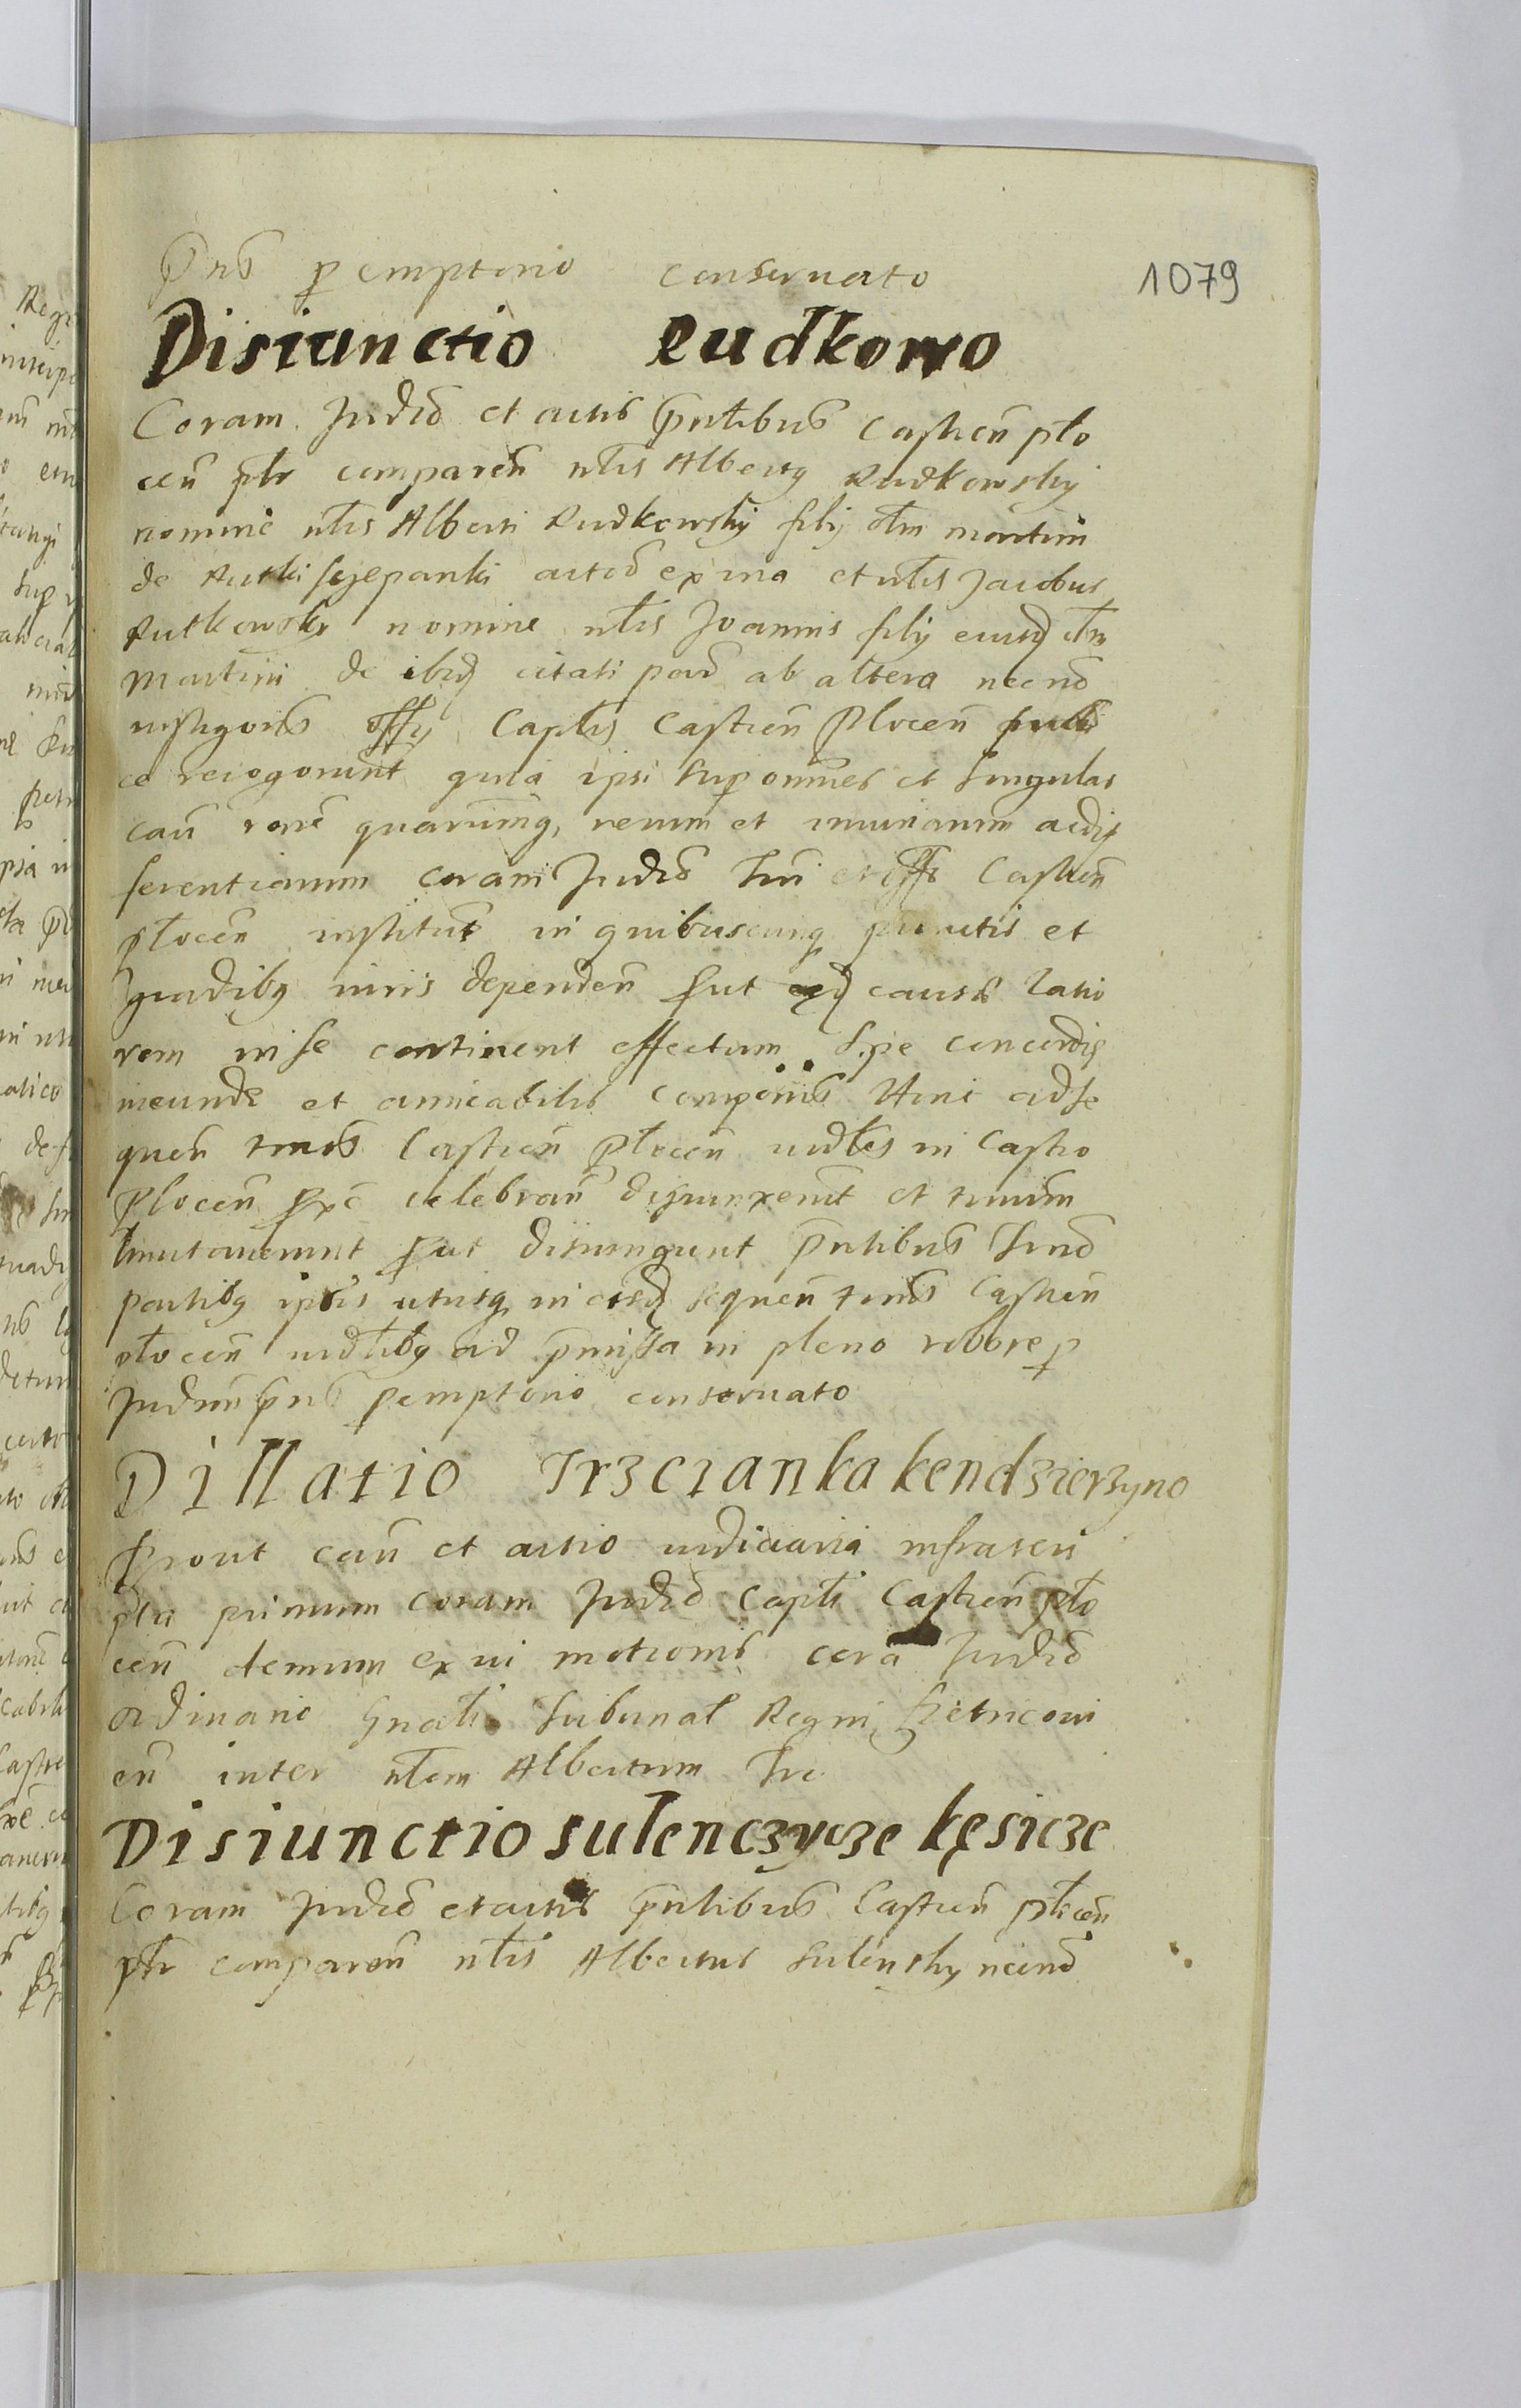 1079
Pntis peremptorio conseruato
Disiunctio Rudkowo
Coram Judio et actis pntibus Castren plo
cen pltr comparen nlis Albertq Rudkowsky
nomine nlis Alberti Rudkowsky filij olim martini
de Rutki sczepanki actor ex una et nlis Jacobus
Rutkowsky nomine nlis Joannis filij eiusd olim
Martini de ibid citati par ab altera necno
instigoris offy Captlis Castren Plocen
recogorunt quia ipsi sup omnes et singulas
cau rone quarumq, rerum et iniuriarum ac dif
ferentiarum coram Judio Trri et offo Castren
plocen institut in quibuscunq punctis et
gradibq iuris dependen put eaed causae latio
rem in se continent effectum spe concordiae
ineundae et amicabilis compönis Hinc ad se
quen tmos Castren plocen iudles in Castro
Plocen pxe celebran disiunxerunt et tminum
limitauerunt put disiungunt pntibus Tmo
partibq ipsis utrisq in eisd sequen tmis Castren
plocen iudlibq ad pmissa in pleno robore p
Judium pns peremptorio conseruato
Dillatio Trzcianka kendzierzyno
Prout cau et actio iudiciaria infrascri
pta primum coram Judio Capti Castren plo
cen demum ex ui motionis cora Judio
ordinario Gnali Tribunal Regni Pietricoui
en inter nlem Albertum Trc
Disiunctio sulenczycze kęsicze
Coram Judio et actis pntibus Castren plocen
pltr comparen nlis Albertus Sulensky necno